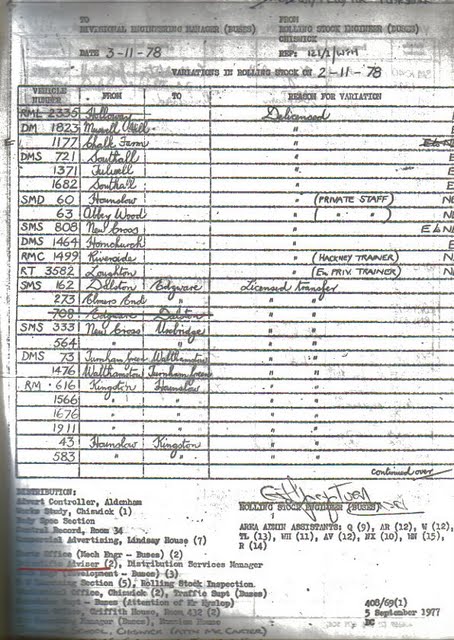 TO FROM
DIVISIONAL ENGINEERING MANAGER (BUSES) ROLLING STOCK ENGINEER (BUSES)
CHISWICK
DATE 3-11-78 REF: 121/1/WPH
VARIATIONS IN ROLLING STOCK ON 2-11-78
VEHICLE NUMBER FROM TO REASON FOR VARIATION
RML 2335 Holloway Delicensed
DM 1823 Muswell Hill "
1177 Chalk Farm "
DMS 721 Southall "
1371 Fulwell "
1682 Southall "
SMD 60 Hounslow " (PRIVATE STAFF)
63 Abbey Wood " ( " " )
SMS 808 New Cross "
DMS 1464 Hornchurch "
RMC 1499 Riverside " (HACKNEY TRAINER)
RT 3582 Loughton " (Ex PRIV. TRAINER)
SMS 162 Dalston Edgware Licensed transfer
273 Elmers End " " "
708 Edgware Dalston " "
SMS 333 New Cross Uxbridge " "
564 " " " "
DMS 73 Turnham Green Walthamstow " "
1476 Walthamstow Turnham Green " "
RM 616 Kingston Hounslow " "
1566 " " " "
1676 " " " "
1911 " " " "
43 Hounslow Kingston " "
583 " " " "
continued over
DISTRIBUTION:
Advert Controller, Aldenham
Works Study, Chiswick (1)
Body Spec Section
Central Record, Room 34
Commercial Advertising, Lindsay House (7)
ROLLING STOCK ENGINEER (BUSES)
AREA ADMIN ASSISTANTS: Q (9), AR (12), W (12),
TL (13), WH (11), AV (12), NX (10), HN (15),
R (14)
Office (Mech Engr - Buses) (2)
Adviser (2), Distribution Services Manager
(Development - Buses) (3)
Section (5), Rolling Stock Inspection
Office, Chiswick (2), Traffic Supt (Buses)
Supt - Buses (Attention of Mr Hyslop)
Office, Griffith House, Room 412 (2)
Manager (Buses),
SCHOOL, CHISWICK (ATTN MR CARTER)
408/69(1)
5 September 1977